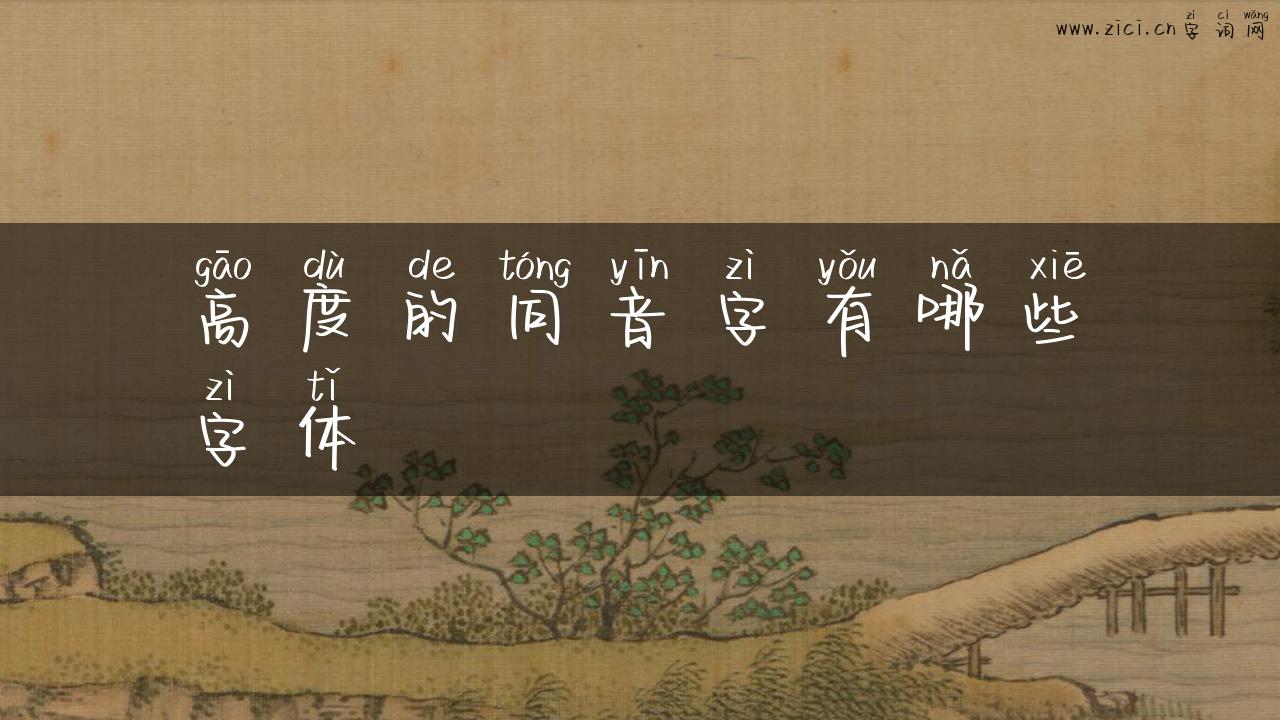 zì cí wǎng
www.zici.cn 字词网
gāo dù de tóng yīn zì yǒu nǎ xiē
高度的同音字有哪些
zì tǐ
字体